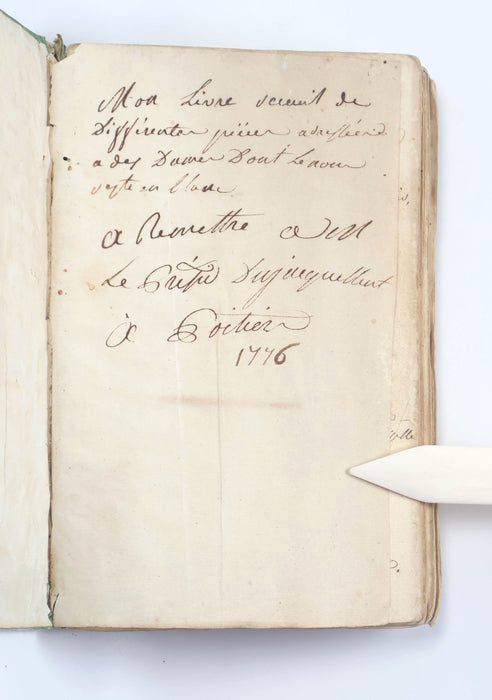 Mon Livre receuil de
Differentes pieces adressées
a des Dames Dont Le nom
reste en blanc
a Remettre a M
Le
a Poitiers
1776